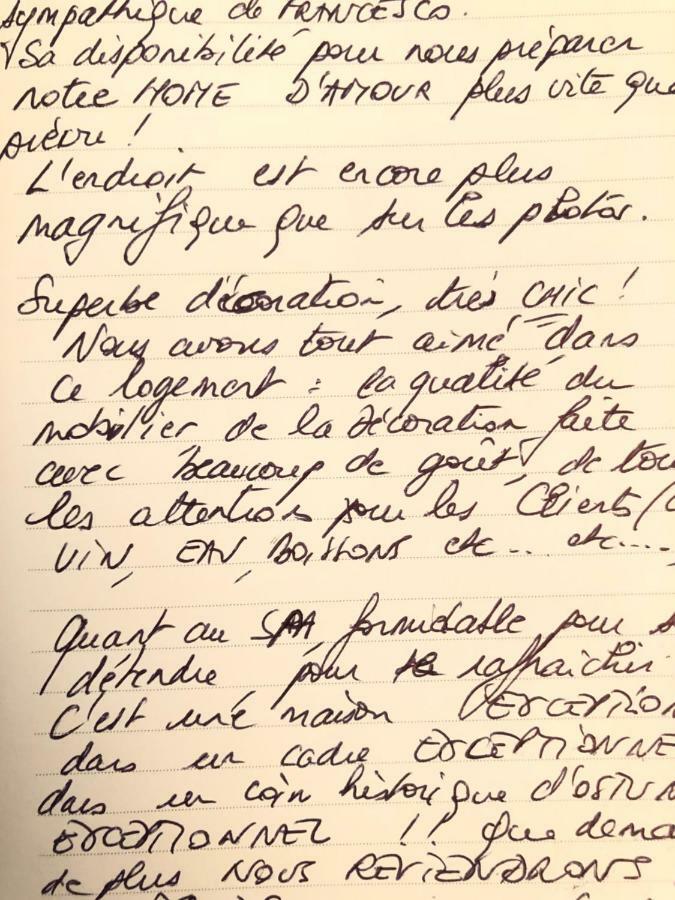 sympathique de FRANCESCO.
Sa disponibilité pour nous préparer
notre HOME D'AMOUR plus vite que
prévu !
L'endroit est encore plus
magnifique que sur les photos.
Superbe décoration, très CHIC !
Nous avons tout aimé dans
ce logement : la qualité du
mobilier de la décoration faite
avec beaucoup de goût, de tou
les attentions pour les Clients/
VIN, EAU, BOISSONS etc... etc....,
Quant au SPA, formidable pour s
détendre, pour se rafraichir
C'est une maison EXCEPTION
dans un cadre EXCEPTIONNE
dans un coin historique d'OSTUN
EXCEPTIONNEL !! que dema
de plus NOUS REVIENDRONS